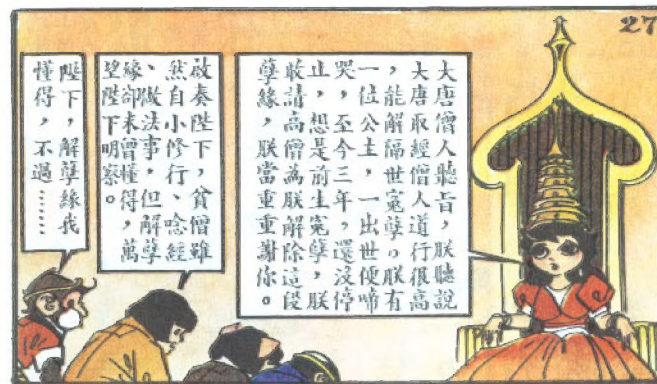 27
大唐僧人聽旨，朕聽說
大唐取經僧人道行很高
，能解隔世寃孽。朕有
一位公主，一出世便啼
哭，至今三年，還没停
止，想是前生寃孽，朕
敢請高僧為朕解除這段
孽緣，朕當重重謝你。
啟奏陛下，貧僧雖
然自小修行、唸經
、做法事，但解孽
緣卻未曾懂得，萬
望陛下明察。
陛下，解孽緣我
懂得，不過……